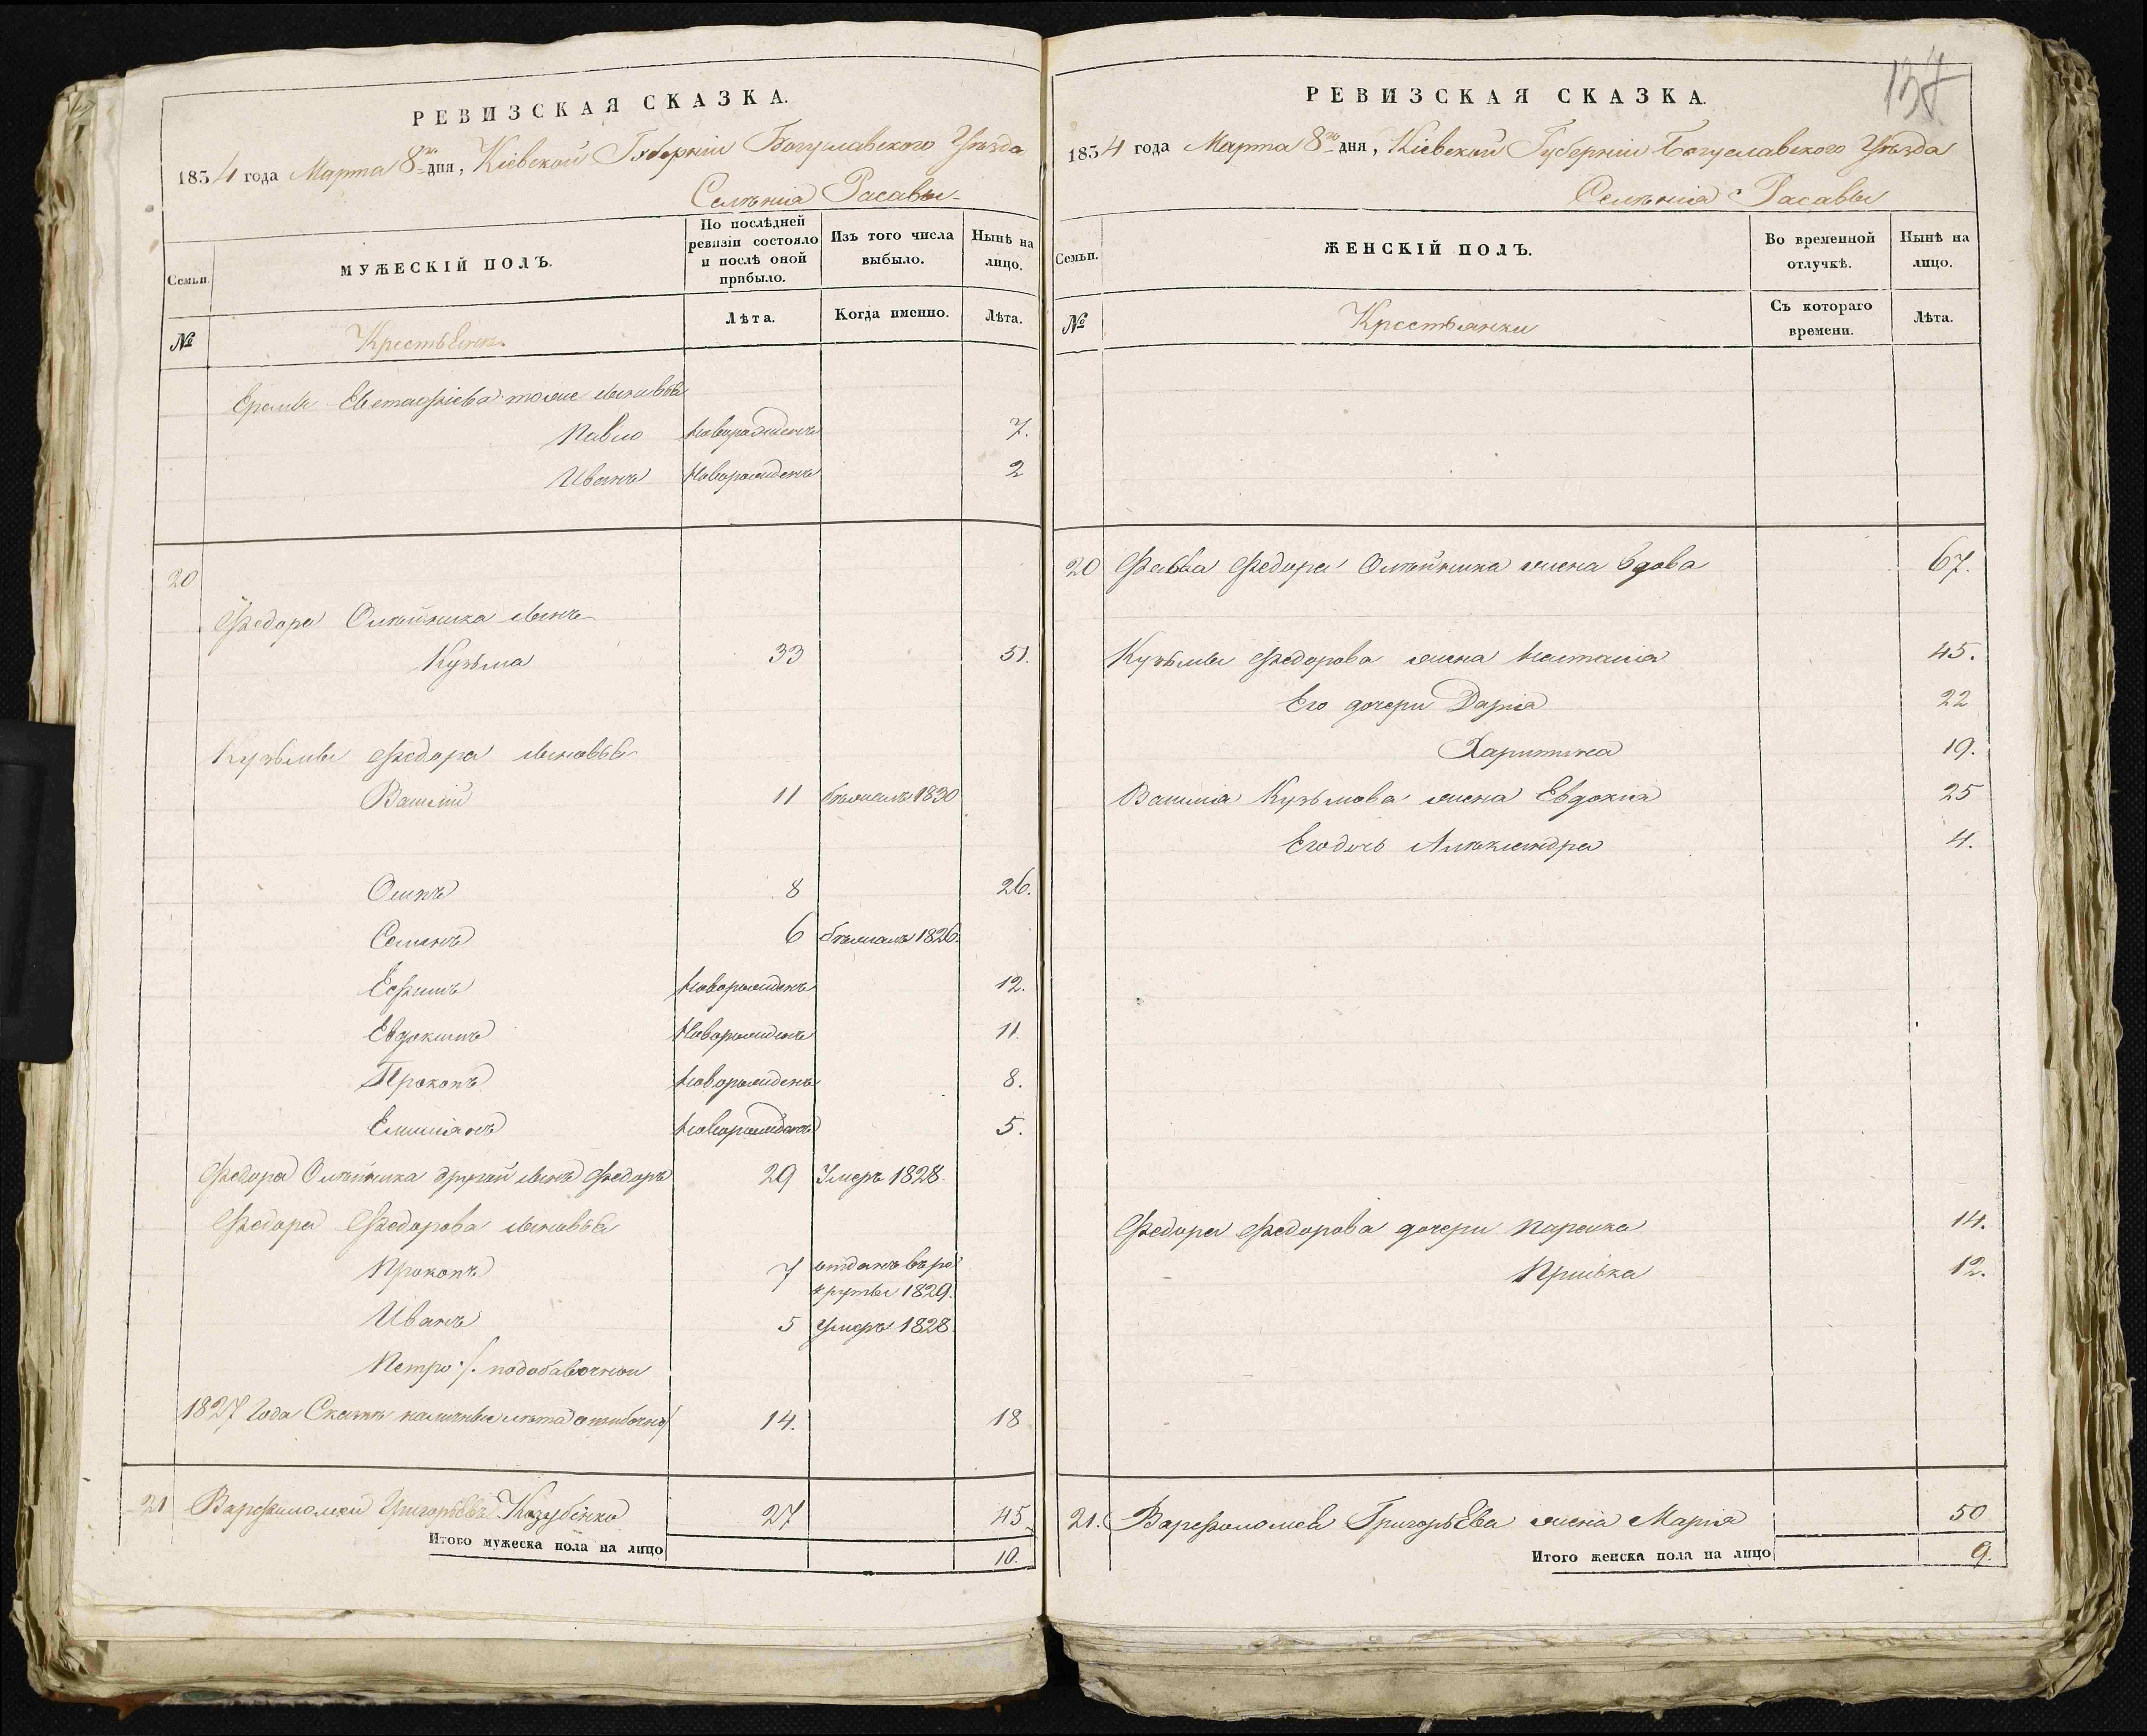 РЕВИЗСКАЯ СКАЗКА.
1834 года Марта 8го дня, Кіевской Губерніи Богуславского Уѣзда
Селенія Расавы
Семьи.
МУЖЕСКІЙ ПОЛЪ.
По послѣдней ревизіи состояло и послѣ оной прибыло.
Изъ того числа выбыло.
Нынѣ на лицо.
№
Крестьяне
Лѣта.
Когда именно.
Лѣта.
Еремы Евстафіева тоже сыновья
Павло Новорожденъ 7.
Иванъ Новорожденъ 2
20
Федора Олейника сынъ
Кузьма 33 51.
Кузьмы Федора сыновья
Василій 11 бѣжалъ 1830
Осипъ 8 26.
Семенъ 6 бѣжалъ 1826.
Ефимъ Новорожденъ 12.
Евдокимъ Новорожденъ 11.
Прокопъ Новорожденъ 8.
Емиліанъ Новорожденъ 5.
Федора Олейника другой сынъ Федоръ 29 Умеръ 1828.
Федора Федорова сыновья
Прокопъ 7 отданъ въ ре
круты 1829.
Иванъ 5 умеръ 1828.
Петро подобавочной
1827 Года Сказкѣ лѣта ошибочно 14. 18
21 Варфоломей Григорьевъ 27 45.
Итого мужеска пола на лицо 10.
137
РЕВИЗСКАЯ СКАЗКА.
1834 года Марта 8го дня, Кіевской Губерніи Богуславского Уѣзда
Селенія Расавы
Семьи.
ЖЕНСКІЙ ПОЛЪ.
Во временной отлучкѣ.
Нынѣ на лицо.
№
Крестьянки
Съ котораго времени.
Лѣта.
20 Федора Олейника жена вдова 67.
Кузьмы Федорова жена Настасія 45.
Его дочери Дарія 22
Харитина 19.
Василія Кузьмова жена Евдокія 25
Его дочь Александра 4.
Федора Федорова дочери Параска 14.
Приська 12.
21. Варфоломея Григорьева жена Марія 50
Итого женска пола на лицо 9.